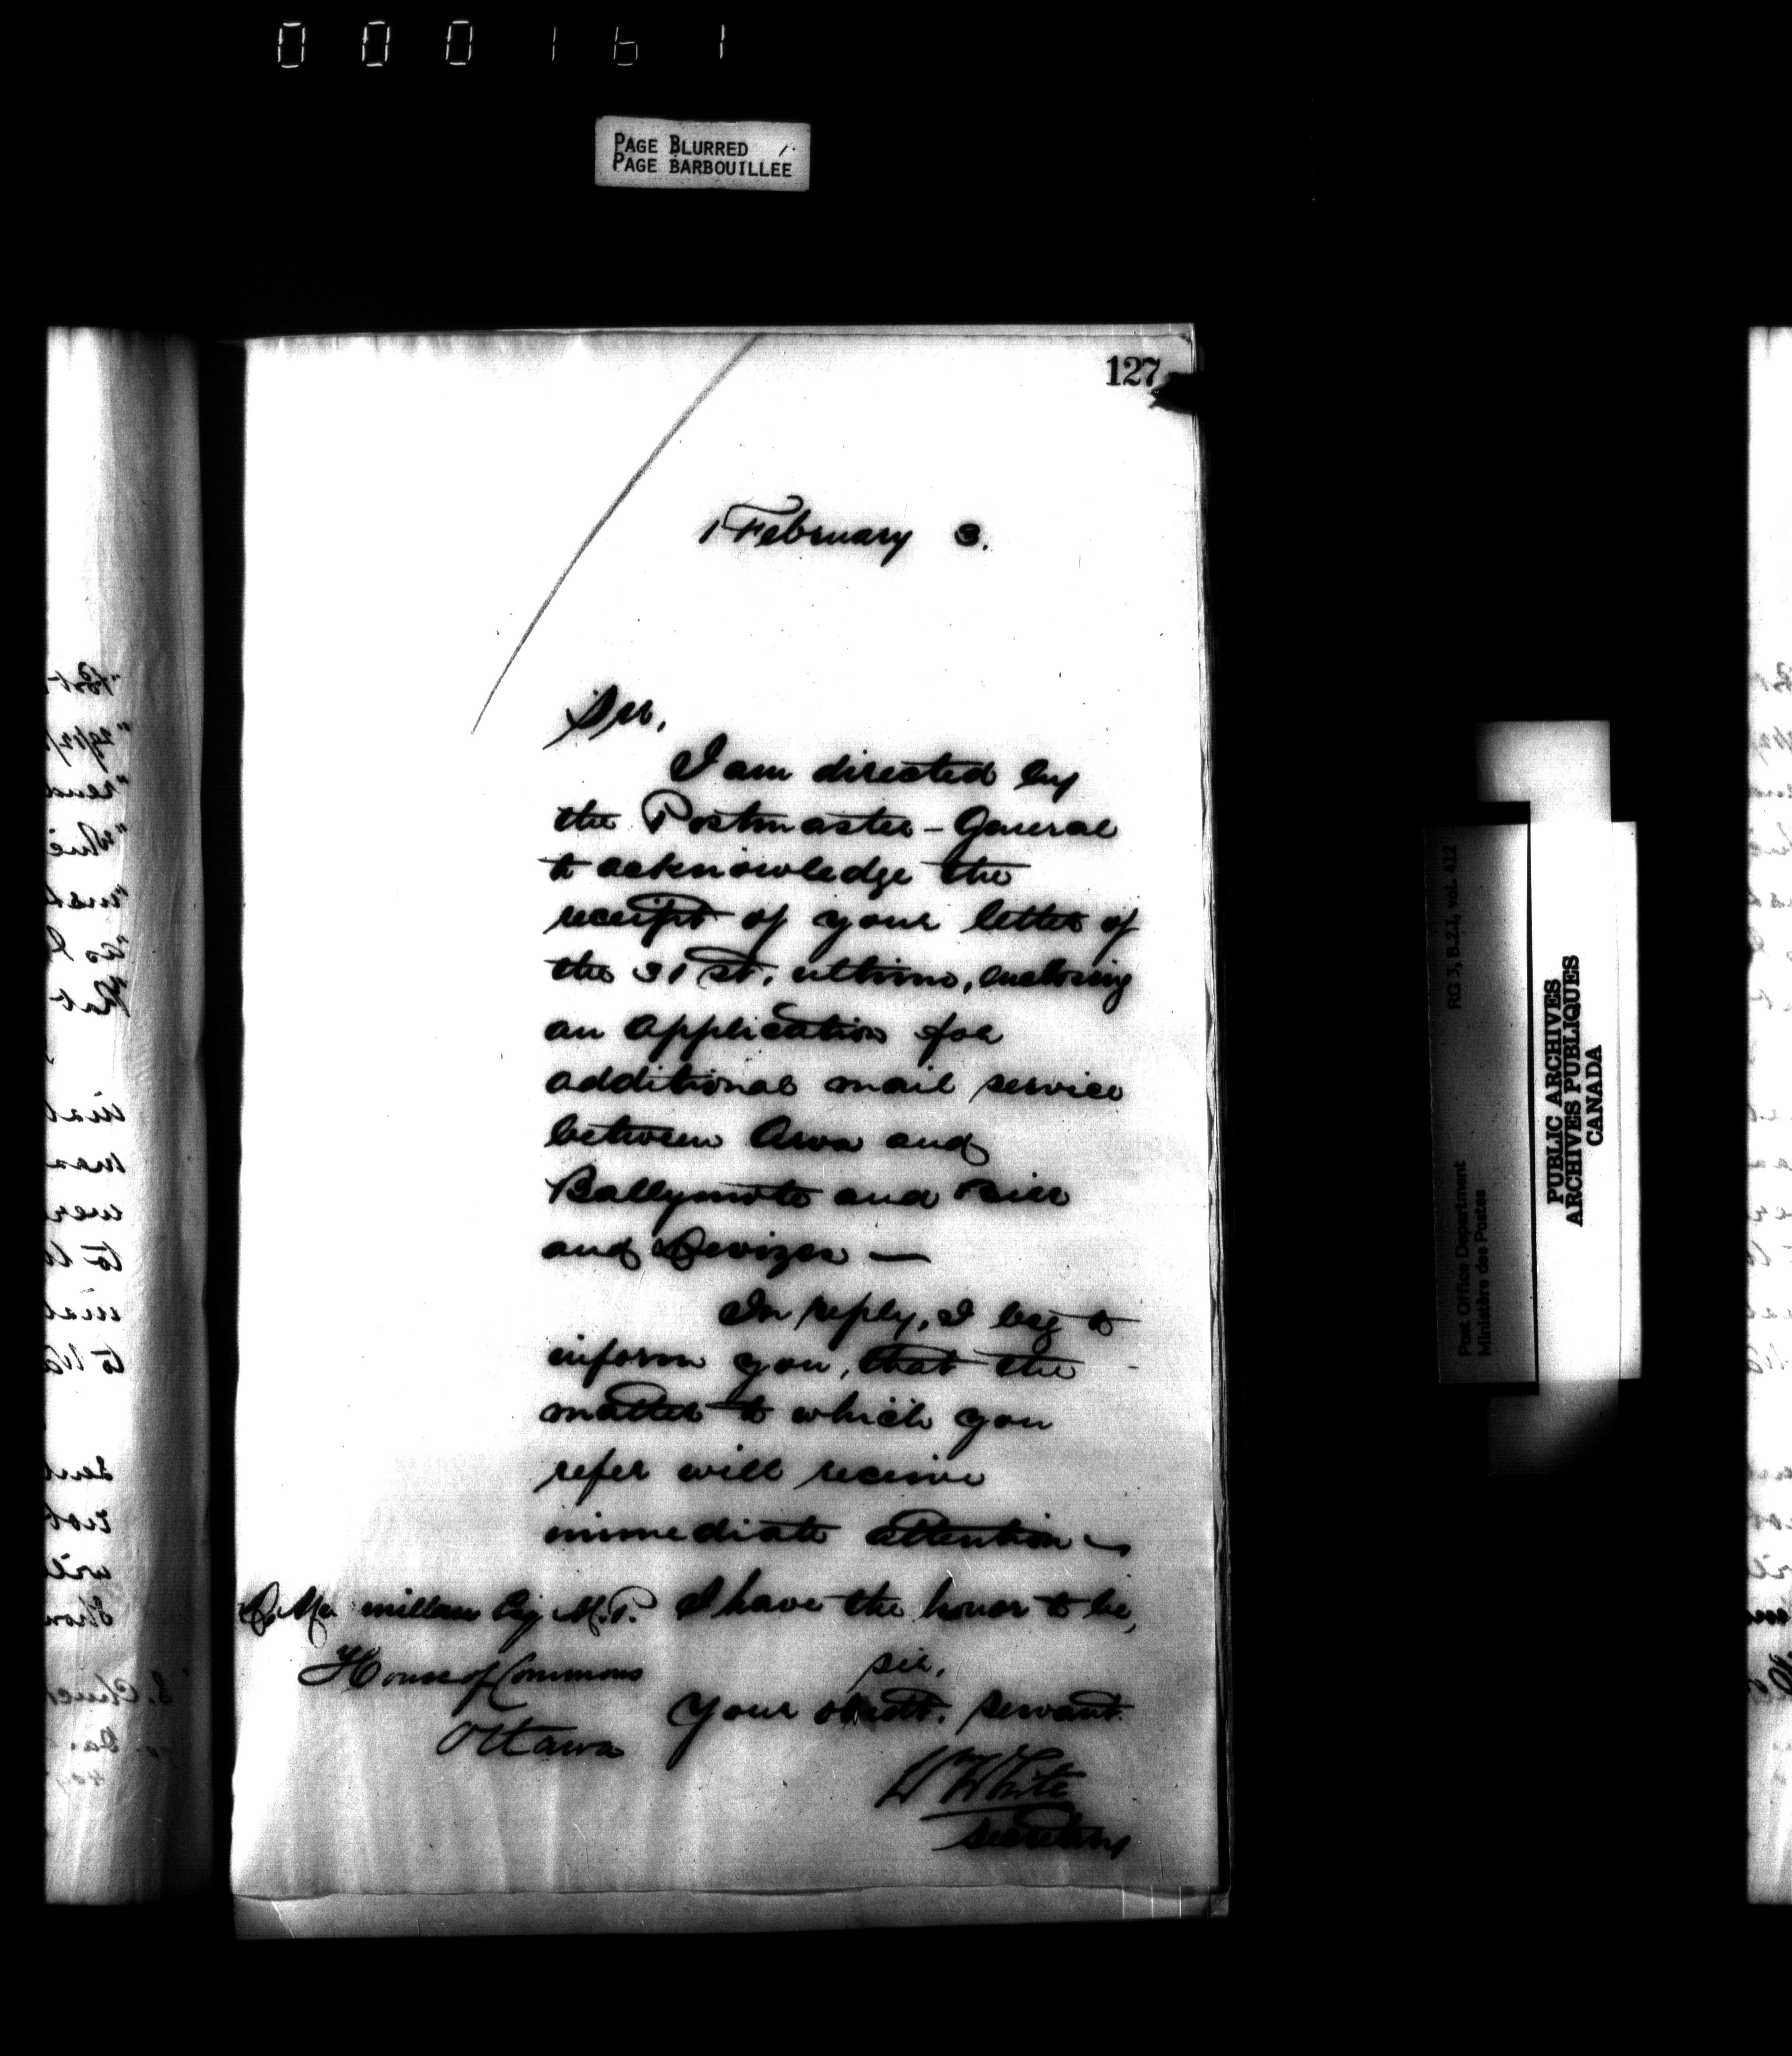 000161
PAGE BLURRED
PAGE BARBOUILLÉE
127
1 February 3.
Sir,
I am directed by
the Postmaster-General
to acknowledge the
receipt of your letter of
the 31st. ultimo, enclosing
an application for
additional mail service
between Arva and
Ballymote and Birr
and Devizes —
In reply, I beg to
inform you, that the
matter to which you
refer will receive
immediate attention —
I have the honor to be,
Sir,
Your obedt. servant.
Wm White
Secretary
D. Mc millan Esq M.P.
House of Commons
Ottawa
RG 3, B.Z.1, vol. 412
Post Office Department
Ministère des Postes
PUBLIC ARCHIVES
ARCHIVES PUBLIQUES
CANADA